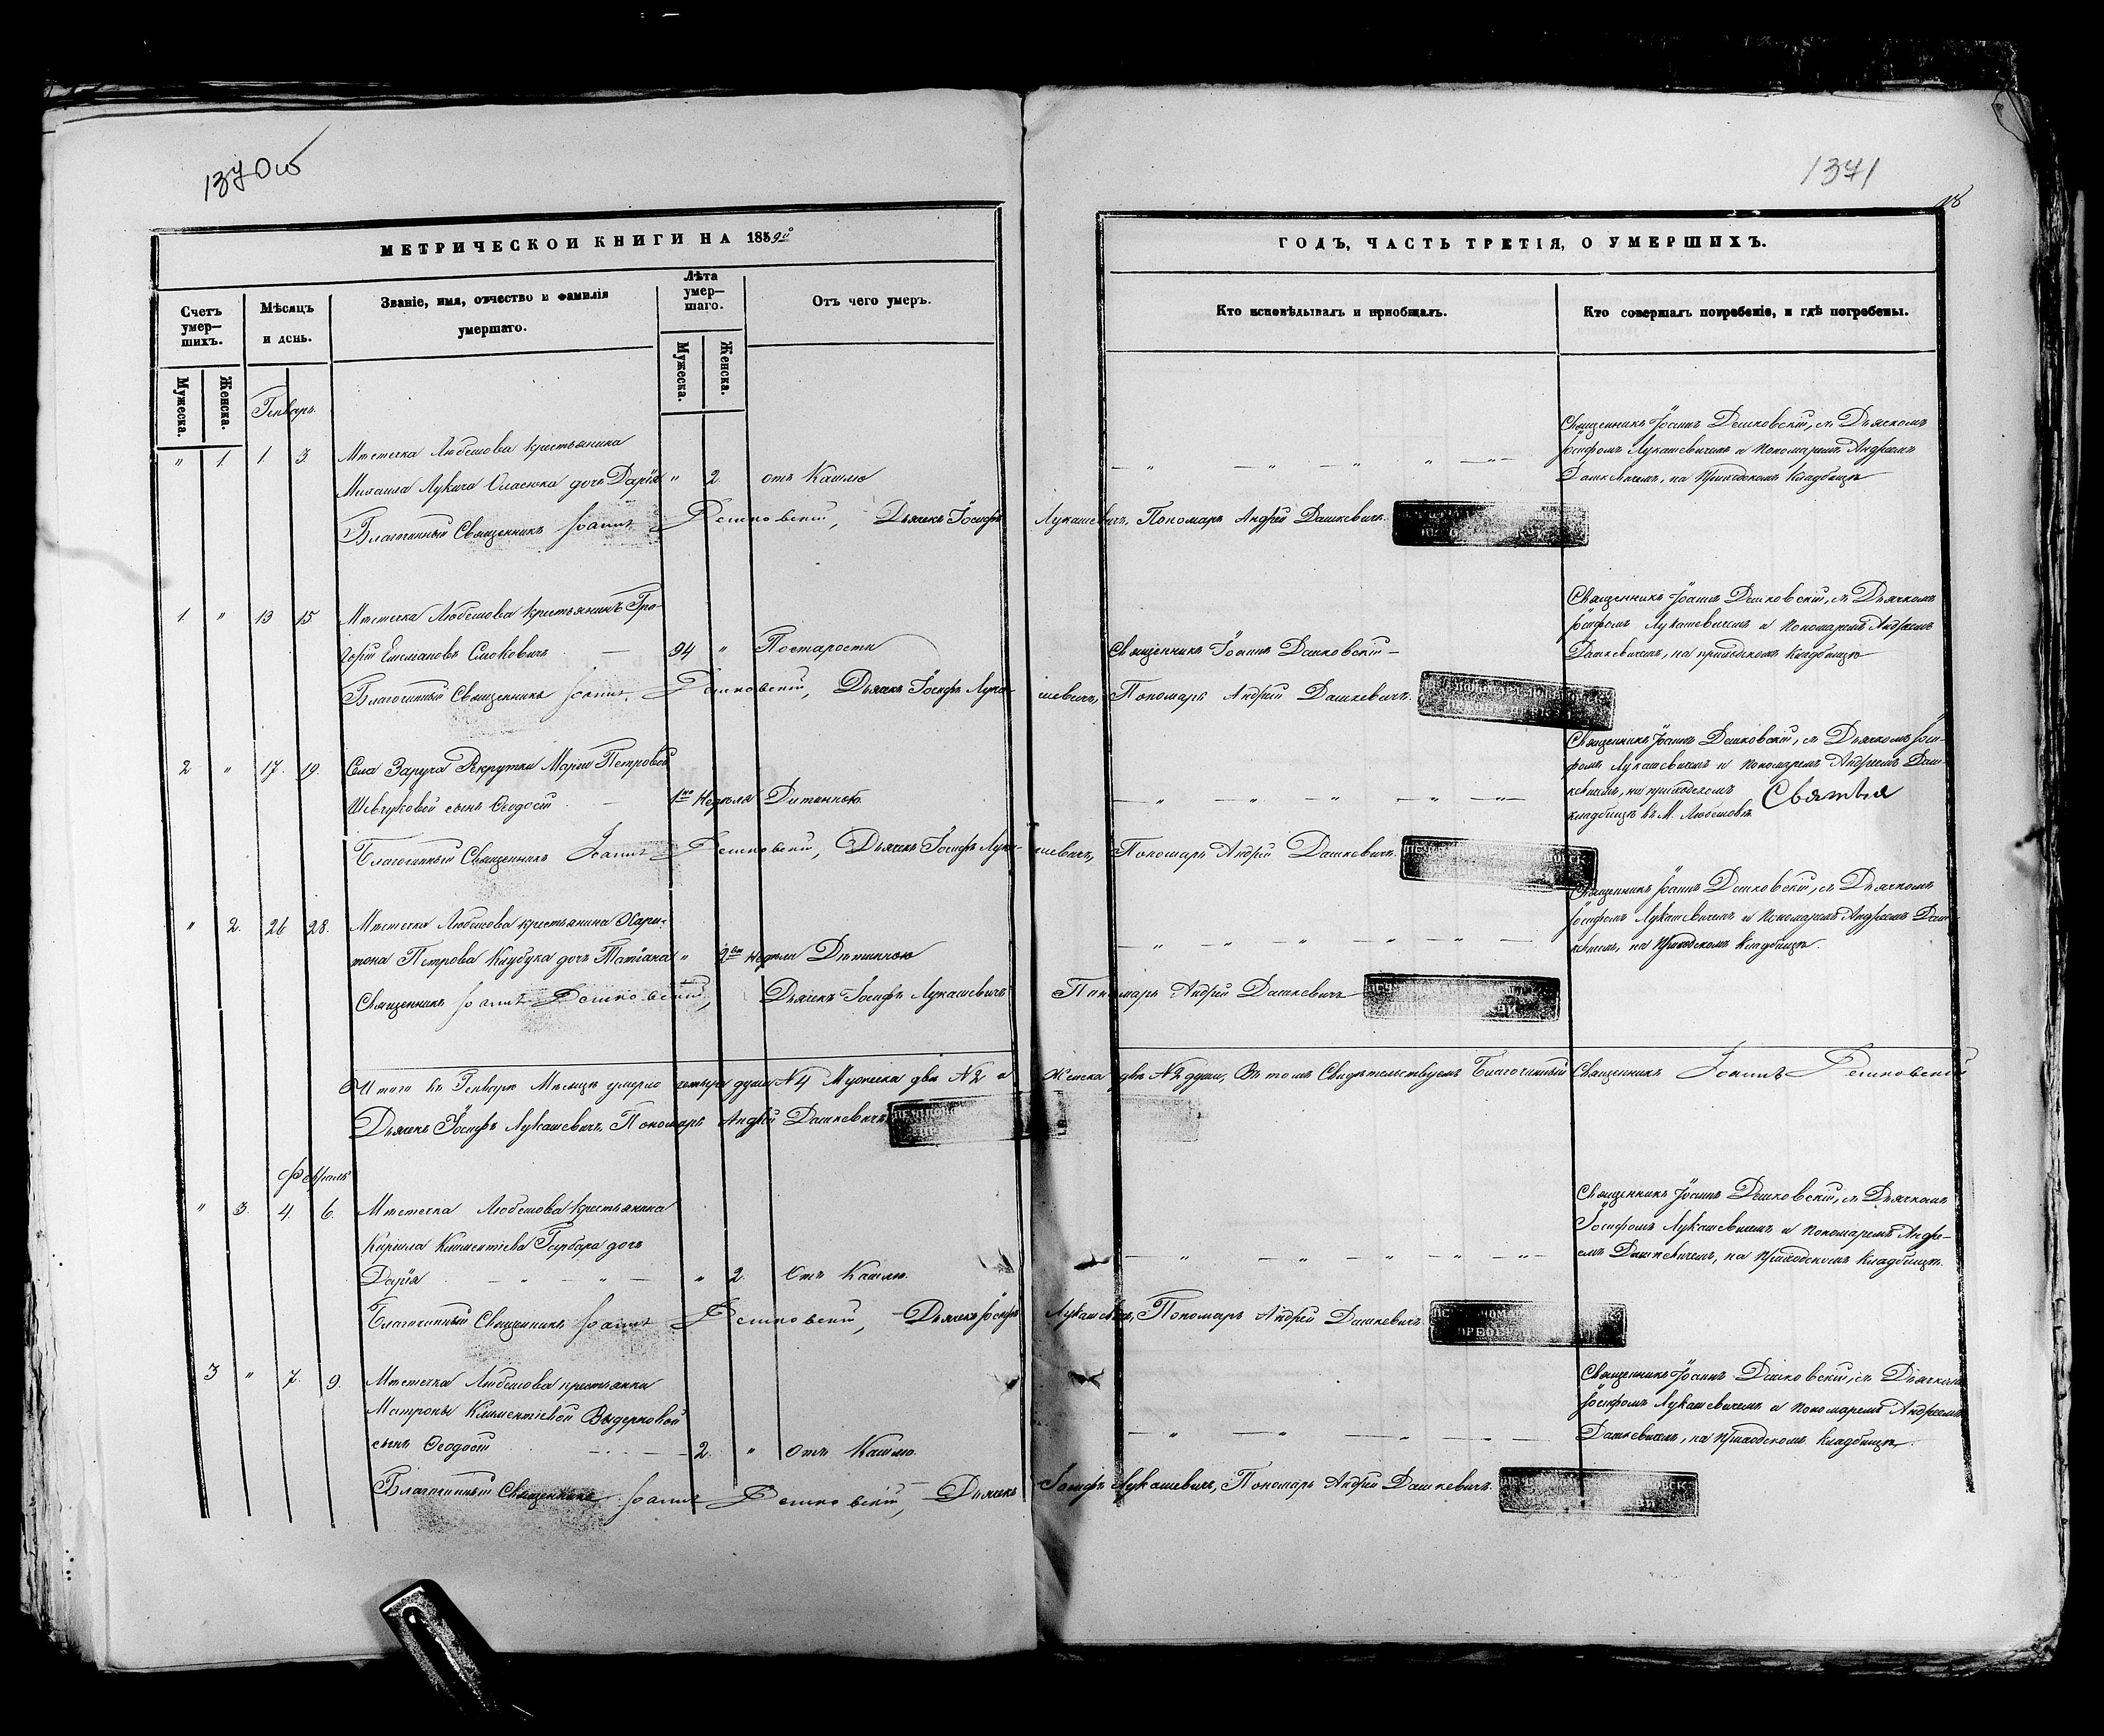 1370об
1371
18
МЕТРИЧЕСКОЙ КНИГИ НА 1859й
ГОДЪ, ЧАСТЬ ТРЕТІЯ, О УМЕРШИХЪ.
Счетъ умер–шихъ.
Мѣсяцъ и день.
Званіе, имя, отчество и фамилія умершаго.
Лѣта умер–шаго.
Отъ чего умеръ.
Кто исповѣдывалъ и пріобщалъ.
Кто совершалъ погребеніе, и гдѣ погребены.
Мужеска.
Женска.
Мужеска.
Женска.
Генварь
" 1. 1. 3. Мѣстечка Любешова крестьянина
Михаила Лукича дочь Дарія " 2. отъ Кашлю
Священникъ Іоаннъ Дешковскій, съ Дьячкомъ
Іосифомъ Лукашевичемъ и Пономаремъ Андреемъ
Дашкевичемъ, на Приходскомъ Кладбищѣ
Благочинный Священникъ Іоаннъ Дешковскій, Дьячекъ Іосифъ Лукашевичъ, Пономарь Андрей Дашкевичъ.
1. " 13 15 Мѣстечка Любешова крестьянинъ Гри-
горій — 94 " Постарости
Священникъ Іоаннъ Дашковскій —
Священникъ Іоаннъ Дешковскій, съ Дьячкомъ
Іосифомъ Лукашевичемъ и Пономаремъ Андреемъ
Дашкевичемъ, на приходскомъ кладбищѣ
Благочинный Священникъ Іоаннъ Дешковскій, Дьячекъ Іосифъ Лукашевичъ, Пономарь Андрей Дашкевичъ.
2 " 17. 19. Села Заруча Рекрутки Маріи Петровой
Шевчуковой сынъ Ѳеодосій — 1на Недѣля Дитинною
Священникъ Іоаннъ Дешковскій, съ Дьячкомъ Іоси-
фомъ Лукашевичемъ и Пономаремъ Андреемъ Даш-
кевичемъ, на приходскомъ
кладбищѣ въ М. Любешовѣ
Благочинный Священникъ Іоаннъ Дешковскій, Дьячекъ Іосифъ Лукашевичъ, Пономарь Андрей Дашкевичъ.
" 2. 26 28. Мѣстечка Любешова крестьянина Хари-
тона Петрова Клубука дочь Татіана " 2ве недѣли Дитинною
Священникъ Іоаннъ Дешковскій, съ Дьячкомъ
Іосифомъ Лукашевичемъ и Пономаремъ Андреемъ Даш-
кевичемъ, на Приходскомъ Кладбищѣ.
Священникъ Іоаннъ Дешковскій, Дьячекъ Іосифъ Лукашевичъ Пономарь Андрей Дашкевичъ
Итого въ Генварѣ Мѣсяцѣ умерло четыре души №4 Мужеска двѣ №2 и Женска двѣ №2 души, Въ томъ Свидѣтельствуемъ Благочинный Священникъ Іоаннъ Дешковскій
Дьячекъ Іосифъ Лукашевичъ, Пономарь Андрей Дашкевичъ
Февраль
" 3. 4. 6. Мѣстечка Любешова Крестьянина
Кирила Климентіева Гарбара дочь
Дарія " 2. Отъ Кашлю.
Священникъ Іоаннъ Дешковскій, съ Дьячкомъ
Іосифомъ Лукашевичемъ и Пономаремъ Андре-
емъ Дашкевичемъ, на Приходскомъ Кладбищѣ.
Благочинный Священникъ Іоаннъ Дешковскій, Дьячекъ Іосифъ Лукашевичъ, Пономарь Андрей Дашкевичъ
3 " 7. 9. Мѣстечка Любешова крестьянки
Матроны Климентіевой
сынъ Ѳеодосій 2. " Отъ Кашлю.
Священникъ Іоаннъ Дешковскій, съ Дьячкомъ
Іосифомъ Лукашевичемъ и Пономаремъ Андреемъ
Дашкевичемъ, на Приходскомъ Кладбищѣ.
Благочинный Священникъ Іоаннъ Дешковскій, Дьячекъ Іосифъ Лукашевичъ, Пономарь Андрей Дашкевичъ.